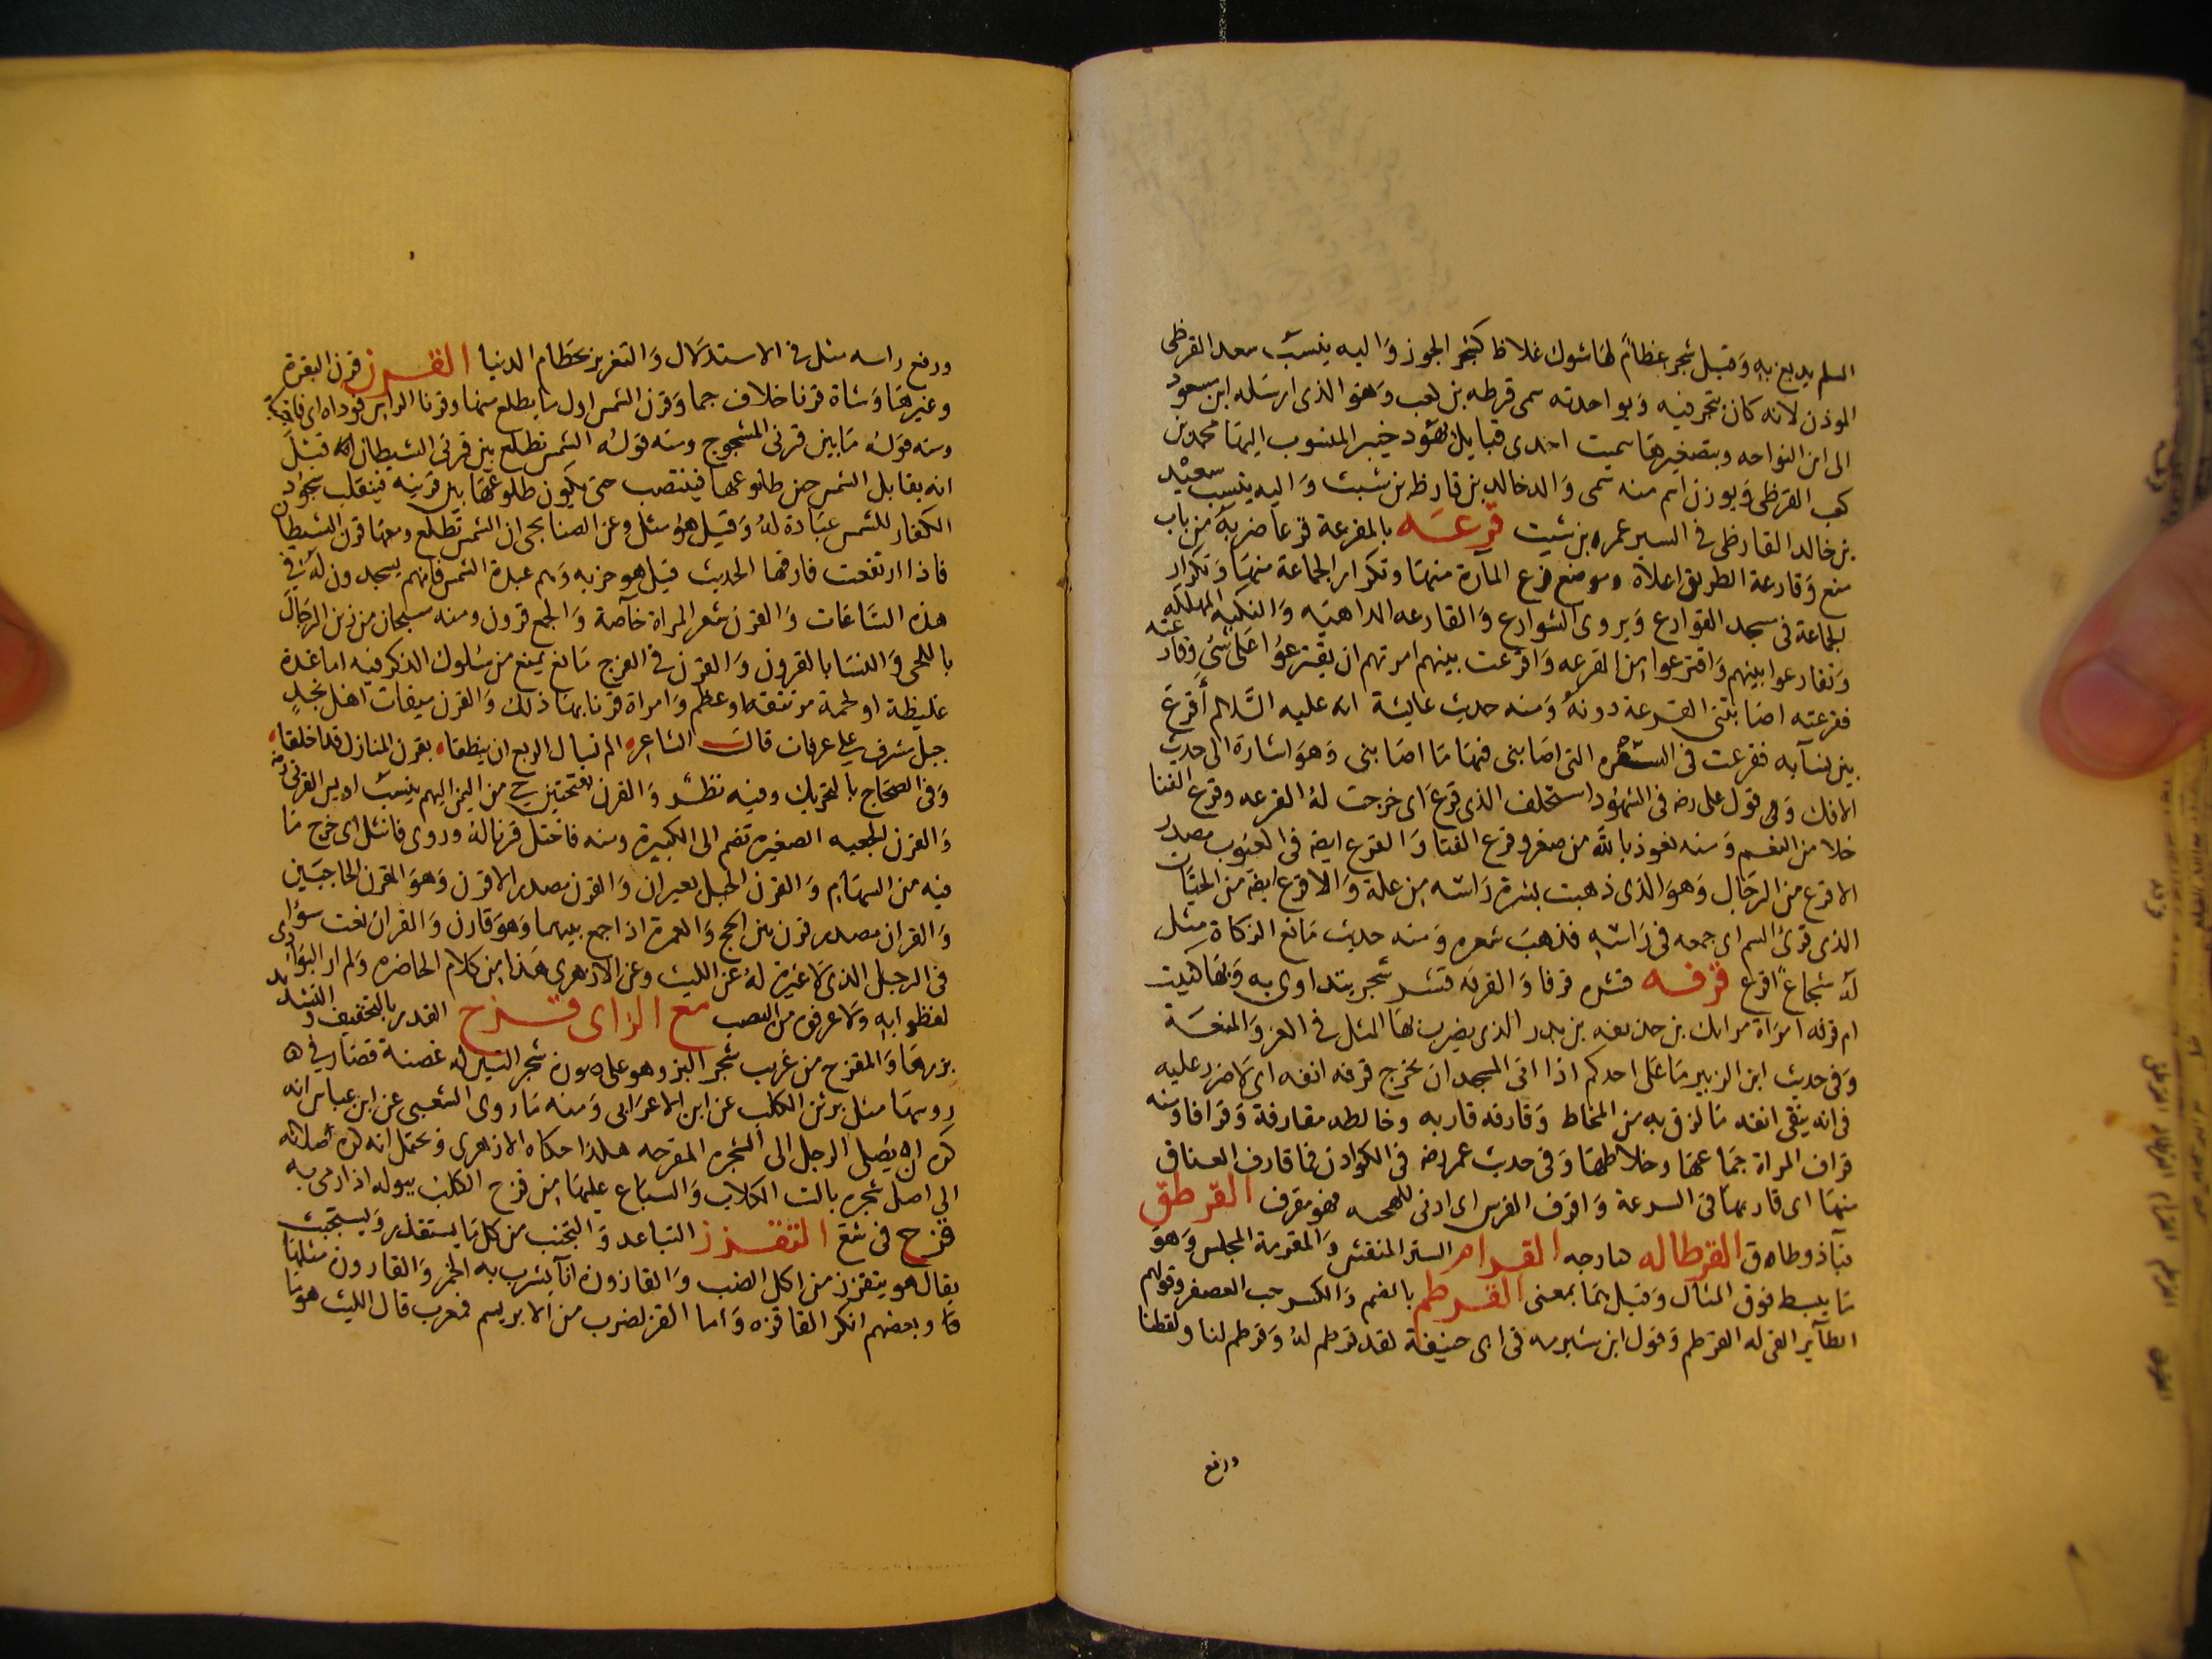 السلم يدبغ به وقيل شجر عظام لها شوك غلاظ كشجر الجوز واليه ينسب سعد القرظي
الموذن لانه كان يتجر فيه وبواحدته سمى قرظه بن كعب وهو الذى ارسله ابن مسعود
الى ابن النواحه وبتصغيرها سميت احدى قبايل يهود خيبر المنسوب اليها محمد بن
كعب القرظى وبوزن اسم منه سمى والد خالد بن قارظ بن شبث واليه ينسب سعيد
بن خالد القارظى فى السير عمره بن شيت قرعه بالمقرعة قرعا ضربه من باب
منع وقارعة الطريق اعلاه وموضع قرع المارة منها وتكرار الجماعة منها وتكرار
الجماعة فى مسجد القوارع ويروى الشوارع والقارعه الداهيه والنكبه المهلكه
وتقارعوا بينهم واقترعوا من القرعه واقرعت بينهم امرتهم ان يقترعوا على شئ وقارعته
فقرعته اصابتنى القرعة دونه ومنه حديث عايشة انه عليه السلام أقرع
بين نسآيه فقرعت فى السفره التى اصابنى فيها ما اصابنى وهو اشارة الى حديث
الافك وفى قول على رضه فى الشهود استحلف الذى قرع اى خرجت له القرعه وقرع الفنا
خلا من النعم ومنه نعوذ بالله من صفر وقرع الفنا والقرع ايضه فى العيوب مصدر
الاقرع من الرجال وهو الذى ذهبت بشرة راسه من علة والاقرع ايضه من الحيات
الذى قرى السم اى جمعه فى راسه فذهب شعره ومنه حديث مانع الزكاة مثل
له شجاعا اقرع قرفه قشره قرفا والقرفه قشر شجر يتداوى به وبها كنيت
ام قرفه امراة مالك بن حذيفه بن بدر الذى يضرب بها المثل فى العز والمنعة
وفى حديث ابن الزبير ما على احدكم اذا اتى المسجد ان يخرج قرفه انفه اى لاضرر عليه
فى انه ينقى انفه ما لزق به من المخاط وقارفه قاربه وخالطه مقارفة وقرافا ومنه
قراف المراة جماعها وخلاطها وفى حديث عمر رضه فى الكوادن فما قارف العتاق
منها اى قاربها فى السرعة واقرف الفرس اى ادنى للهجنه فهو مقرف القرطق
قبآ ذو طاق القرطاله القرام الستر المنقش والمقرمة المجلس وهو
ما يبسط فوق المثال وقيل هما بمعنى القرطم بالضم والكسر حب العصفر وقولهم
الطآير القى له القرطم وقول ابن شبرمه فى ابى حنيفة لقد قرطم له وقرطم لنا ولقطنا
ورفع
ورفع راسه مثل فى الاستدلال والتغرير بحطام الدنيا القرن قرن البقرة
وغيرها وشاة قرنا خلاف جما وقرن الشمس اول ما يطلع منها وقرنا الراس فوداه اى ناحيتاه
ومنه قوله ما بين قرنى المشجوج ومنه قوله الشمس تطلع بين قرنى الشيطان قيل
انه يقابل الشمس حين طلوعها فينتصب حتى يكون طلوعها بين قرنيه فينقلب سجود
الكفار للشمس عبادة له وقيل هو مثل وعن الصنابحى ان الشمس تطلع ومعها قرن الشيطان
فاذا ارتفعت فارقها الحديث قيل هو حزبه وهم عبدة الشمس فانهم يسجدون له فى
هذه الساعات والقرن شعر المراة خآصة والجمع قرون ومنه سبحان من زين الرجال
باللحى والنسا بالقرون والقرن فى الفرج مانع يمنع من سلوك الذكر فيه اما غدة
غليظة او لحمة مرتتقه او عظم وامراة قرنا بها ذلك والقرن ميقات اهل نجد
جبل مشرف على عرفات قال الشاعره الم تسال الربع ان ينطقا ه بقرن المنازل قد اخلقا ه
وفى الصحاح بالتحريك وفيه نظر والقرن بفتحتين حى من اليمن اليهم ينسب اويس القرنى رضه
والقرن الجعبه الصغيرة تضم الى الكبيرة ومنه فاختل قرنا له وروى فانثل اى خرج ما
فيه من السهام والقرن الحبل بعيران والقرن مصدر الاقرن وهو المقرن الحاجبين
والقران مصدر قرن بين الحج والعمرة اذا جمع بينهما وهو قارن والقران نعت سؤ
فى الرجل الذى لا غيرة له عن الليث وعن الازهرى هذا من كلام الحاضره ولم ار البوادى
لفظوا به ولا عرفوه من النصب مع الزاى قزح القدر بالتخفيف والتشديد
بزرها والمقزح من غريب شجر البر وهو على صورة شجر التين له غصنة قصار فى
روسها مثل برثن الكلب عن ابن الاعرابى ومنه ما روى الشعبى عن ابن عباس انه
كره ان يصلى الرجل الى الشجره المقزحه هكذا حكاه الازهرى ويحتمل انه كره صلاته
الى اصل شجره بالت الكلاب والسباع عليها من قزح الكلب ببوله اذا رمى به
قزح فى شع التقزز التباعد والتجنب من كل ما يستقذر ويستخبث
يقال هو يتقزز من اكل الضب والقازوزة انآ يشرب به الخمر والقارورة مثلها
وبعضهم انكر القاقزه واما القز لضرب من الابريسم فمعرب قال الليث هو ما